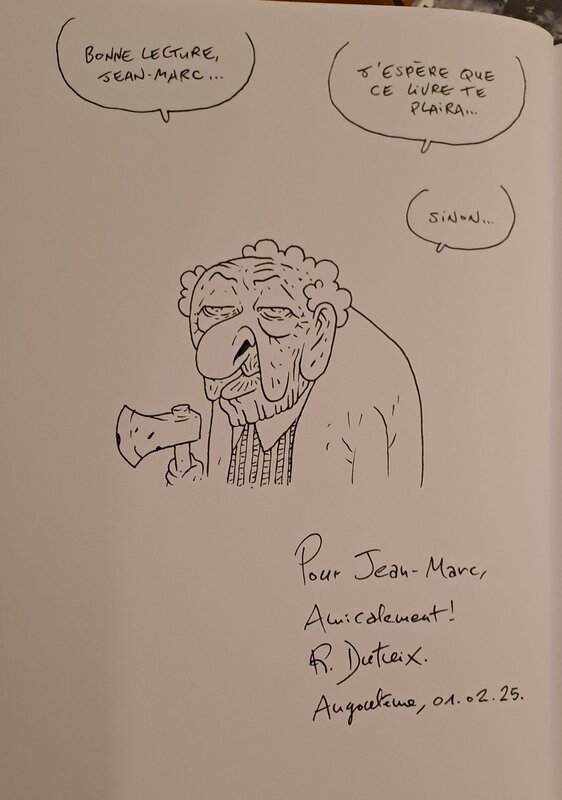 BONNE LECTURE,
JEAN-MARC...
J'ESPÈRE QUE
CE LIVRE TE
PLAIRA...
SINON...
Pour Jean-Marc,
Amicalement!
R. Dutreix.
Angoulême, 01.02.25.